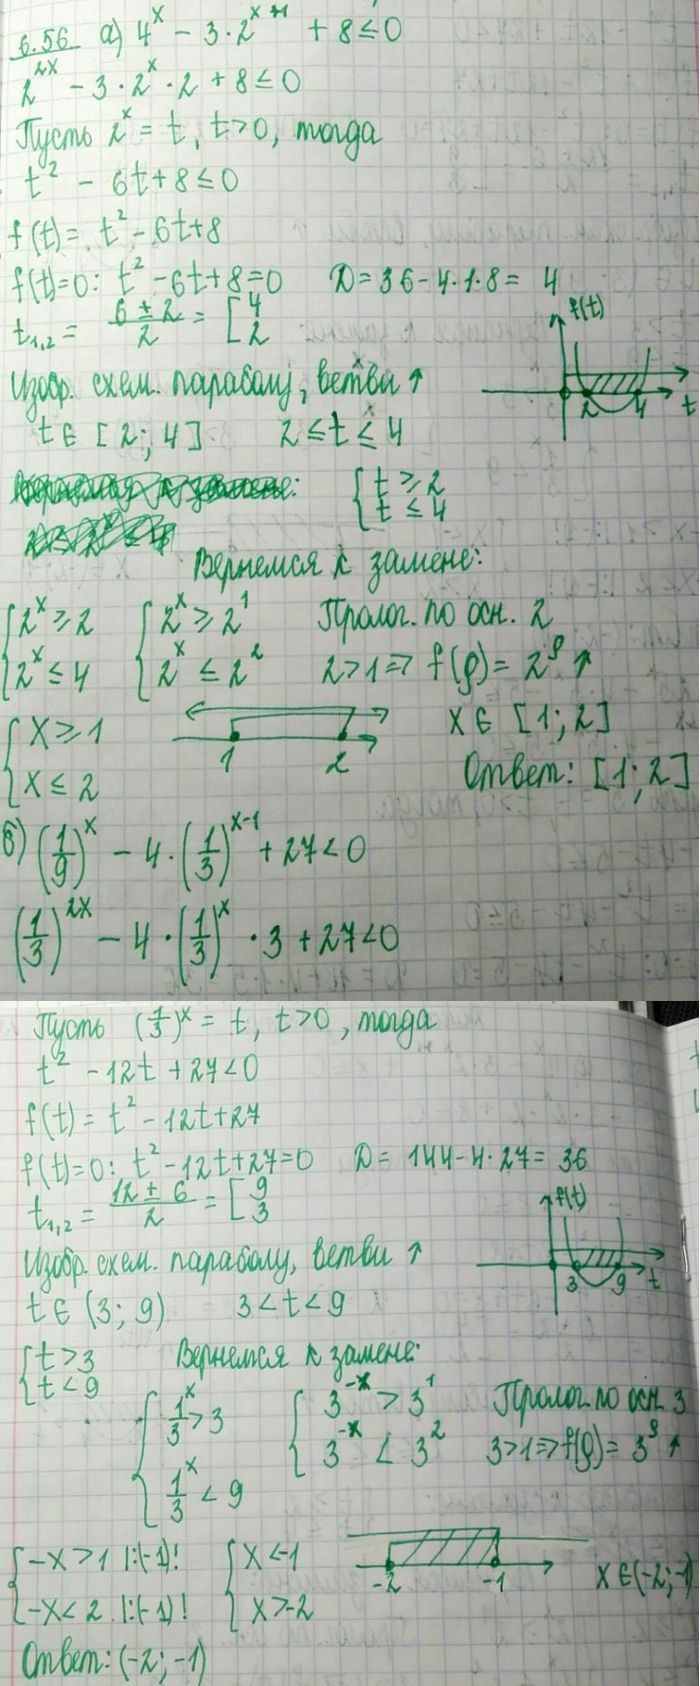 6.56 а) 4^x − 3·2^{x+1} + 8 ≤ 0
2^{2x} − 3·2^x·2 + 8 ≤ 0
Пусть 2^x = t, t>0, тогда
t² − 6t + 8 ≤ 0
f(t) = t² − 6t + 8
f(t)=0: t² − 6t + 8 = 0 D = 36 − 4·1·8 = 4
t₁,₂ = (6 ± 2)/2 = [4 2
f(t)
Изобр. схем. параболу, ветви ↑
2 4 t
t ∈ [2; 4] 2 ≤ t ≤ 4
{t ≥ 2
t ≤ 4
Вернемся к замене:
{2^x ≥ 2 {2^x ≥ 2^1 Пролог. по осн. 2
2^x ≤ 4 2^x ≤ 2^2 2>1 => f(p) = 2^p ↑
{x ≥ 1 x ∈ [1; 2]
x ≤ 2 1 2 Ответ: [1; 2]
б) (1/9)^x − 4·(1/3)^{x−1} + 27 < 0
(1/3)^{2x} − 4·(1/3)^x·3 + 27 < 0
Пусть (1/3)^x = t, t>0, тогда
t² − 12t + 27 < 0
f(t) = t² − 12t + 27
f(t)=0: t² − 12t + 27 = 0 D = 144 − 4·27 = 36
t₁,₂ = (12 ± 6)/2 = [9 3
f(t)
Изобр. схем. параболу, ветви ↑
3 9 t
t ∈ (3; 9) 3 < t < 9
{t > 3 Вернемся к замене:
t < 9
{1/3^x > 3 {3^{−x} > 3^1 Пролог. по осн. 3
1/3^x < 9 3^{−x} < 3^2 3>1 => f(p) = 3^p ↑
{−x > 1 |:(−1)! {x < −1
−x < 2 |:(−1)! x > −2 −2 −1 x ∈ (−2; −1)
Ответ: (−2; −1)